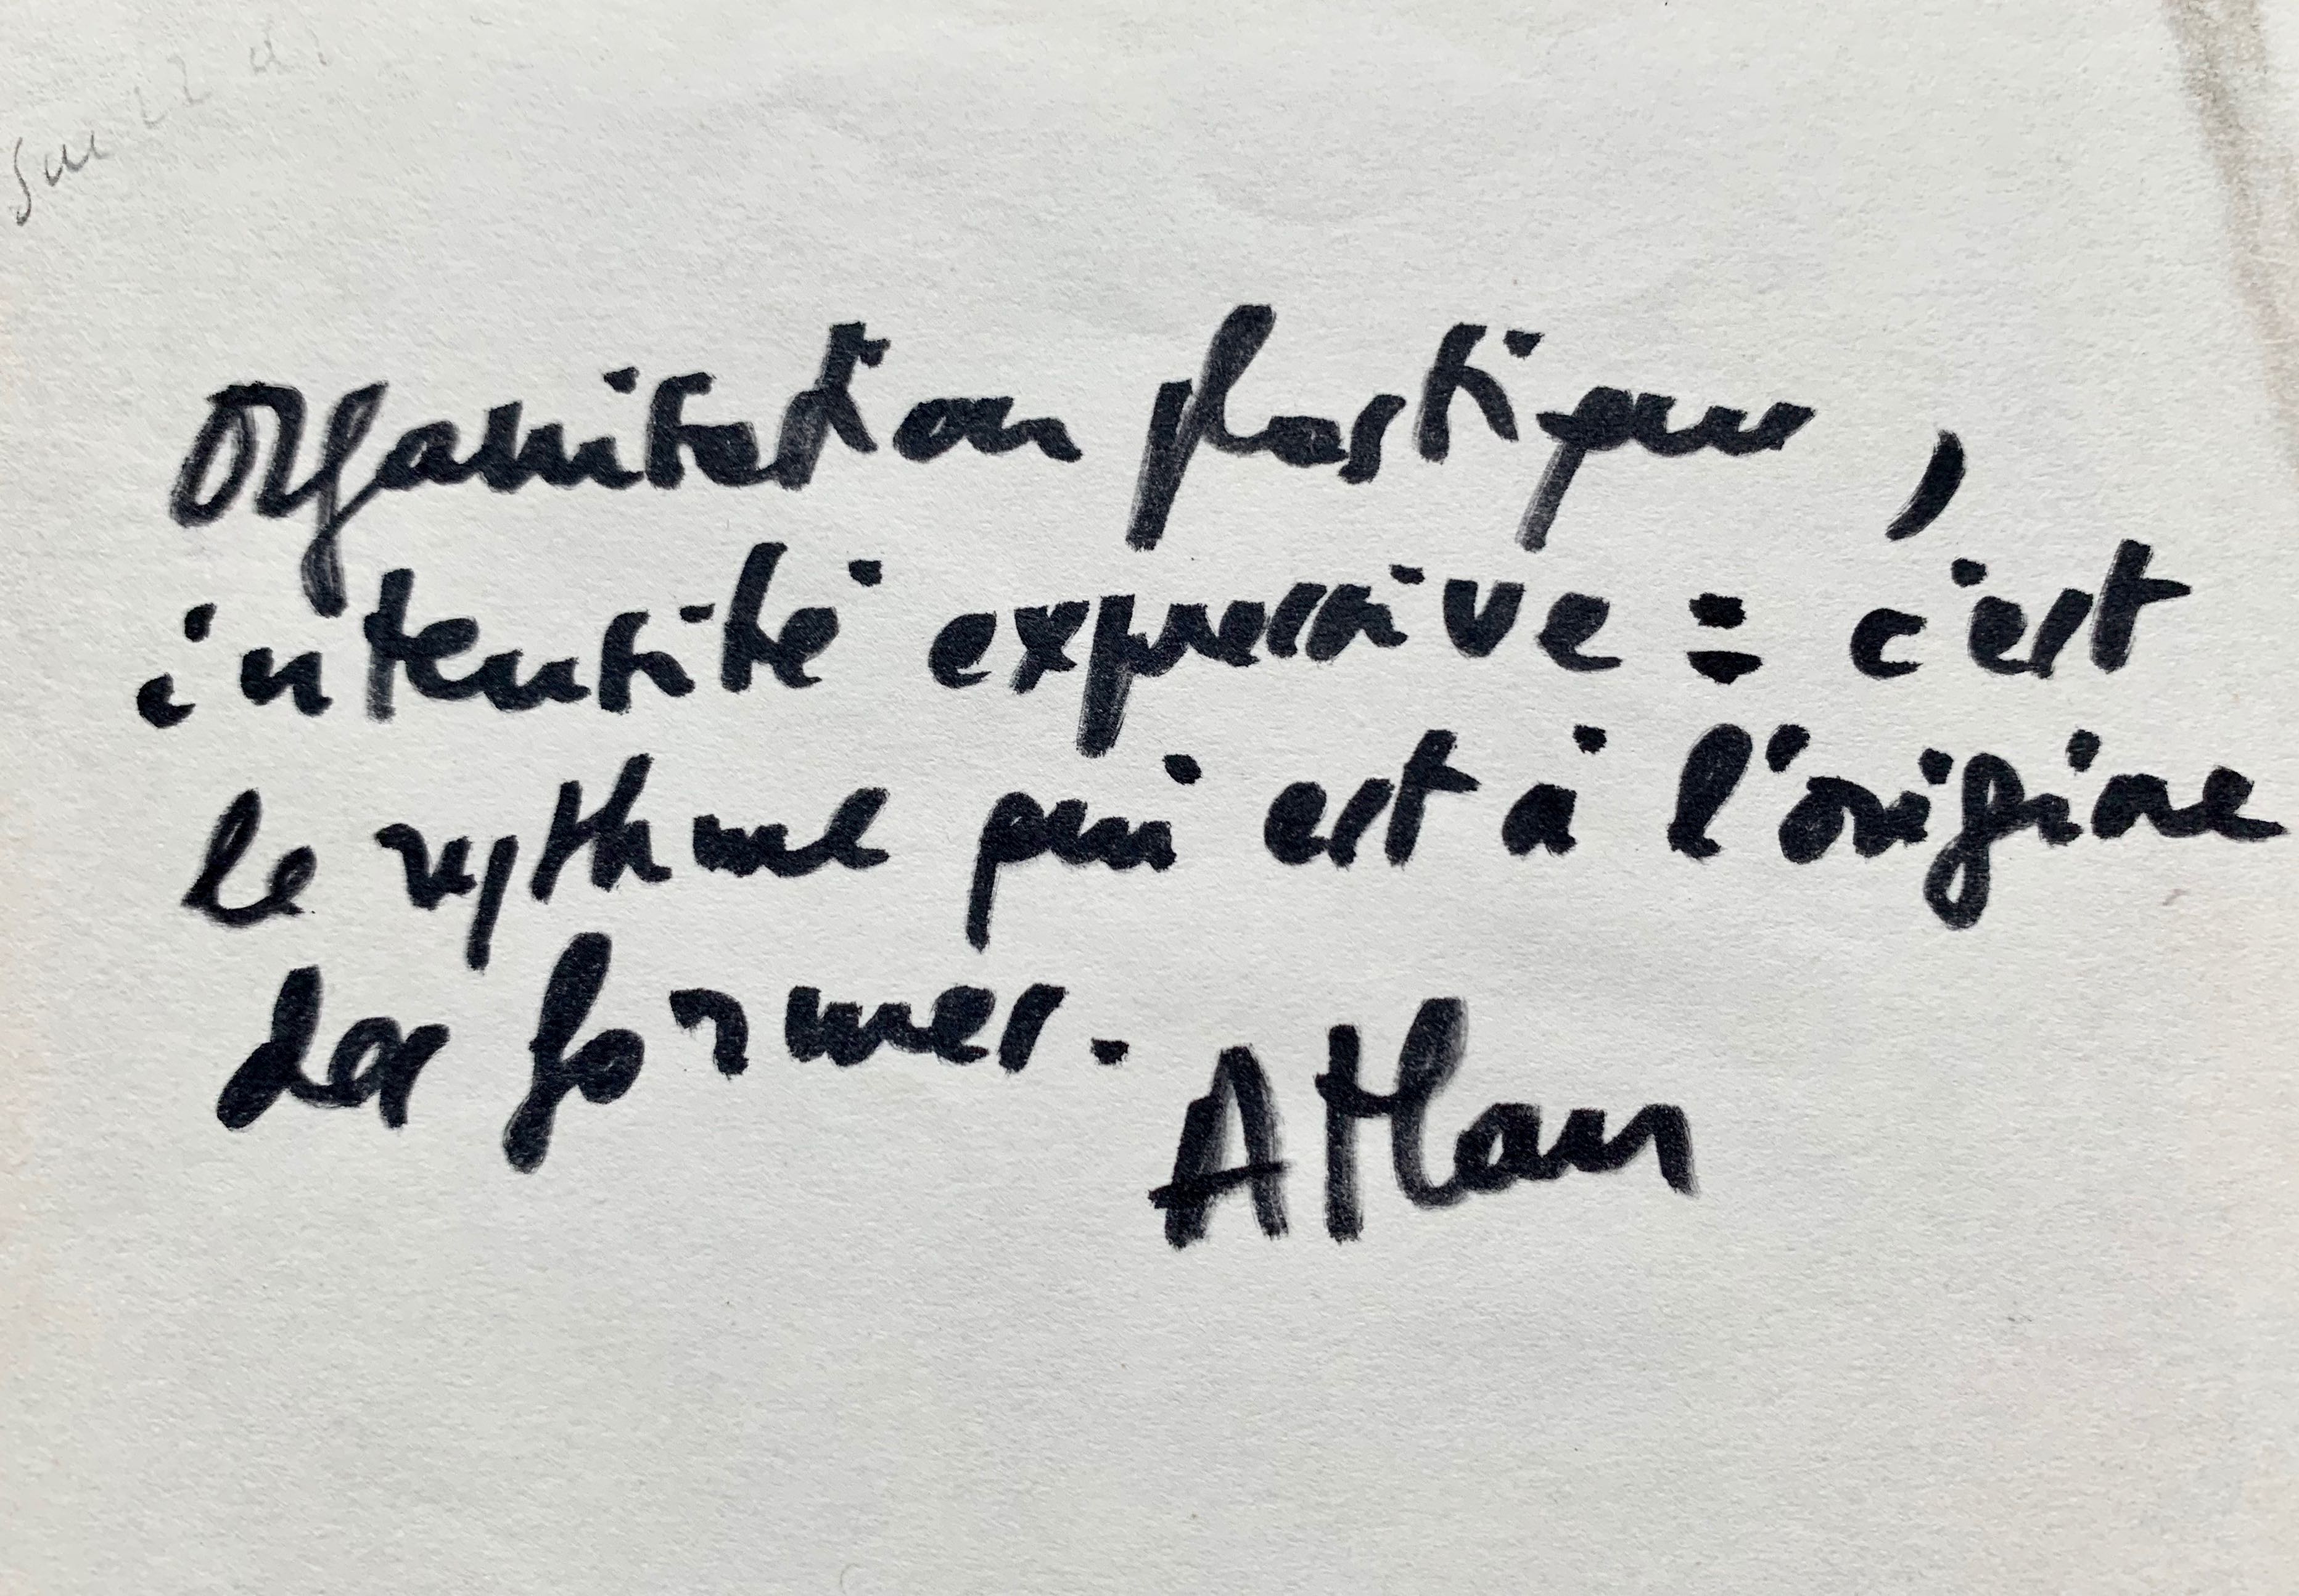 Organisation plastique,
intensité expressive : c'est
le rythme qui est à l'origine
des formes.
Atlan